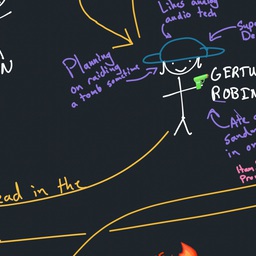 Likes analog
audio tech
Planning
on raiding
a tomb sometime
GERTU
ROBIN
N
Ate
sand
in or
ead in the